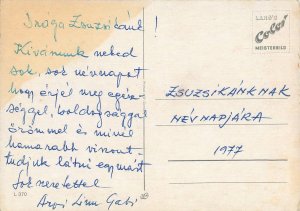 Drága Zsuzsikánk!
Kívánunk neked
sok, sok névnapot
hogy érjél meg egész-
séggel, boldogsággal
örömmel és minél
hamarabb viszont-
tudjuk látni egymást
Sok szeretettel
Gabi
L 370
Colos
MEISTERBILD
ZSUZSIKÁNKNAK
NÉVNAPJÁRA
1977